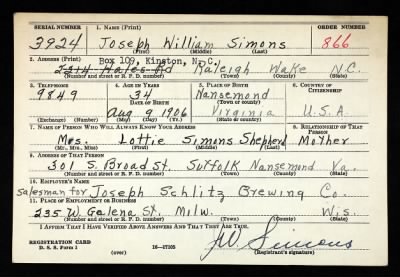 SERIAL NUMBER 1. NAME (Print) ORDER NUMBER
3924 Joseph William Simons 866
(First) (Middle) (Last)
2. ADDRESS (Print) Box 109, Kinston, N.C.
2314 Bates Rd Raleigh Wake N.C.
(Number and street or R. F. D. number) (Town) (County) (State)
3. TELEPHONE 4. AGE IN YEARS 5. PLACE OF BIRTH 6. COUNTRY OF CITIZENSHIP
9849 34 Nansemond
DATE OF BIRTH (Town or county)
Aug 9 1906 Virginia U.S.A.
(Exchange) (Number) (Mo.) (Day) (Yr.) (State or country)
7. NAME OF PERSON WHO WILL ALWAYS KNOW YOUR ADDRESS 8. RELATIONSHIP OF THAT PERSON
Mrs. Lottie Simons Shepherd Mother
(Mr., Mrs., Miss) (First) (Middle) (Last)
9. ADDRESS OF THAT PERSON
301 S. Broad St. Suffolk Nansemond Va.
(Number and street or R. F. D. number) (Town) (County) (State)
10. EMPLOYER'S NAME
Salesman for Joseph Schlitz Brewing Co.
11. PLACE OF EMPLOYMENT OR BUSINESS
235 W. Galena St. Milw. Wis.
(Number and street or R. F. D. number) (Town) (County) (State)
I AFFIRM THAT I HAVE VERIFIED ABOVE ANSWERS AND THAT THEY ARE TRUE.
REGISTRATION CARD JW Simons
D. S. S. Form 1 (over) 16—17105 (Registrant's signature)